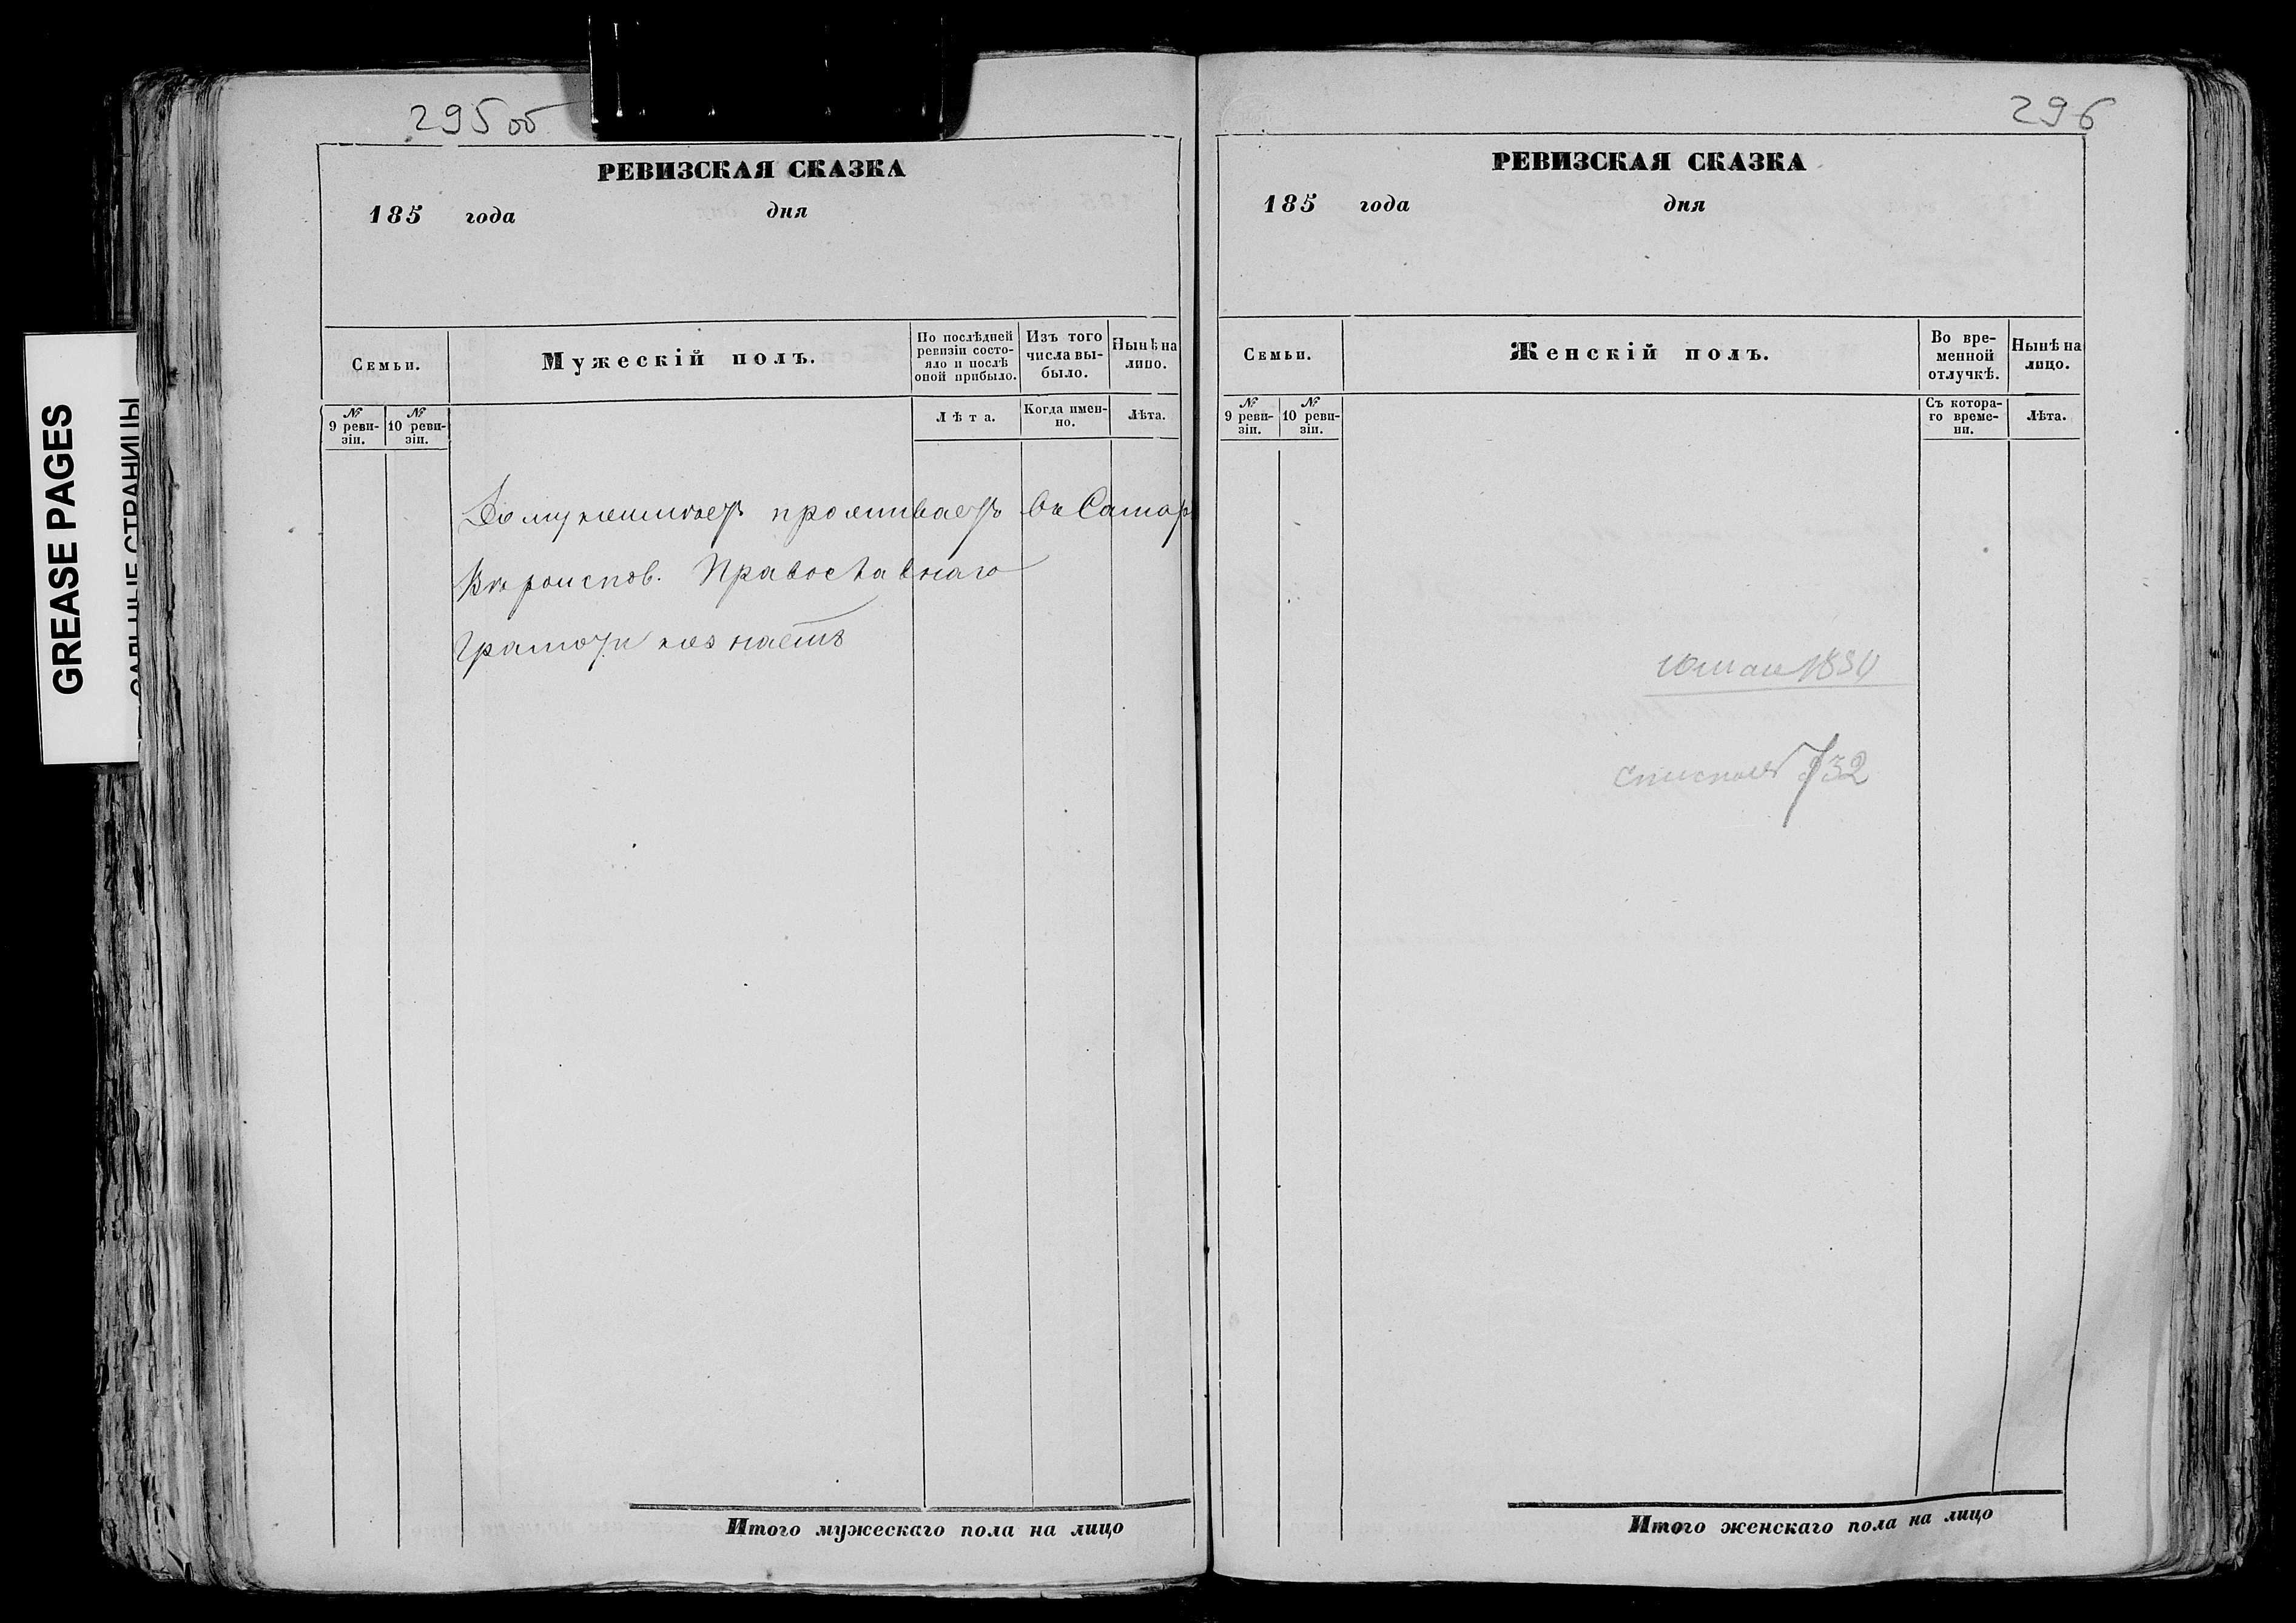 295 об
РЕВИЗСКАЯ СКАЗКА
185 года дня
Семьи.
Мужескій полъ.
По послѣдней ревизіи состо-
яло и послѣ оной прибыло.
Изъ того числа вы-
было.
Нынѣ на лицо.
№ 9 реви-
зіи.
№ 10 реви-
зіи.
Лѣта.
Когда имен-
но.
Лѣта.
Дому неимѣетъ проживаетъ въ Самар
Вѣроиспов. Православнаго
Грамоти незнаетъ
Итого мужескаго пола на лицо
296
РЕВИЗСКАЯ СКАЗКА
185 года дня
Семьи.
Женскій полъ.
Во вре-
менной
отлучкѣ.
Нынѣ на
лицо.
№ 9 реви-
зіи.
№ 10 реви-
зіи.
Съ котора-
го време-
ни.
Лѣта.
732
Итого женскаго пола на лицо
GREASE PAGES